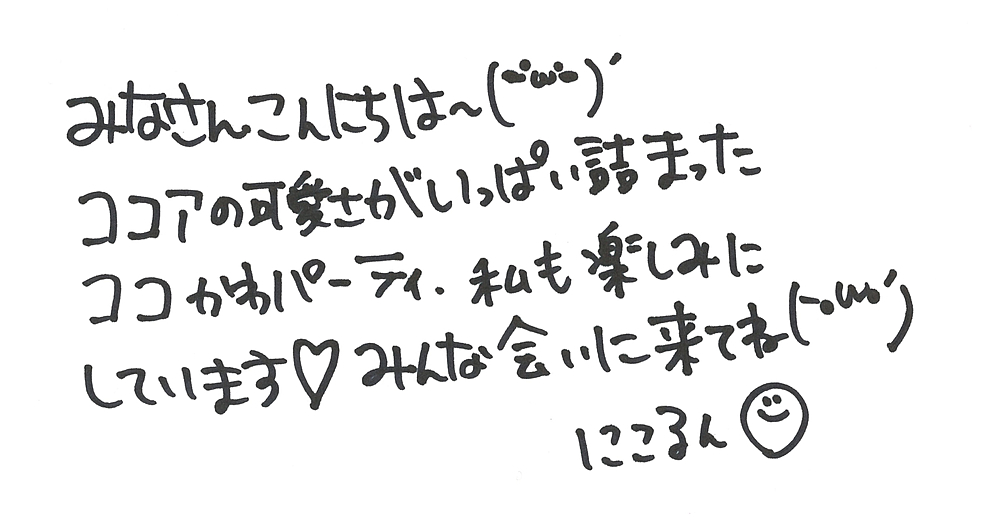 みなさんこんにちは〜(˙ω˙)´
ココアの可愛さがいっぱい詰まった
ココかわパーティ．私も楽しみに
しています♡みんな会いに来てね(˙ω˙)
にこるん☺